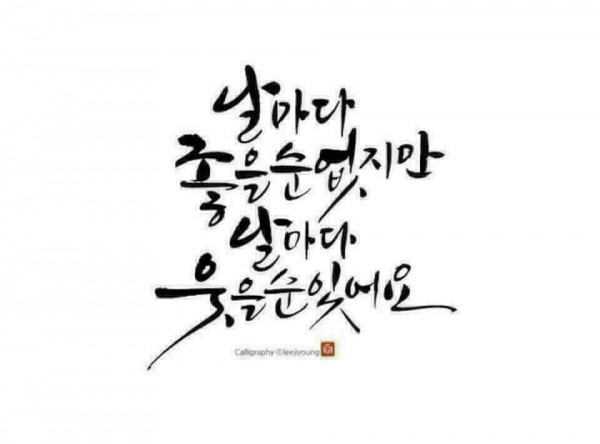 날마다
좋을순없지만
날마다
웃을순있어요
Calligraphy ©leejiyoung